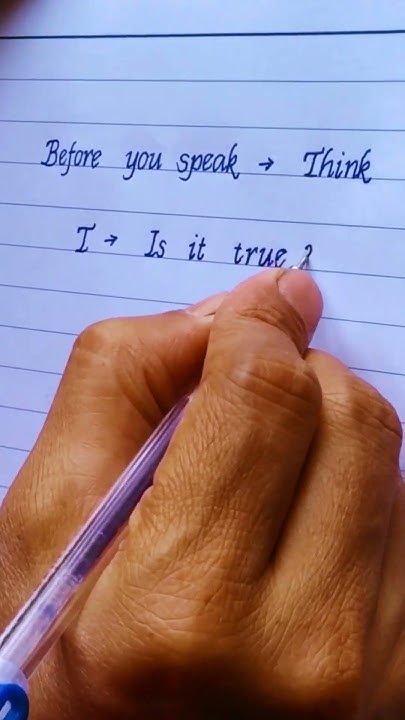 Before you speak → Think
T → Is it true ?